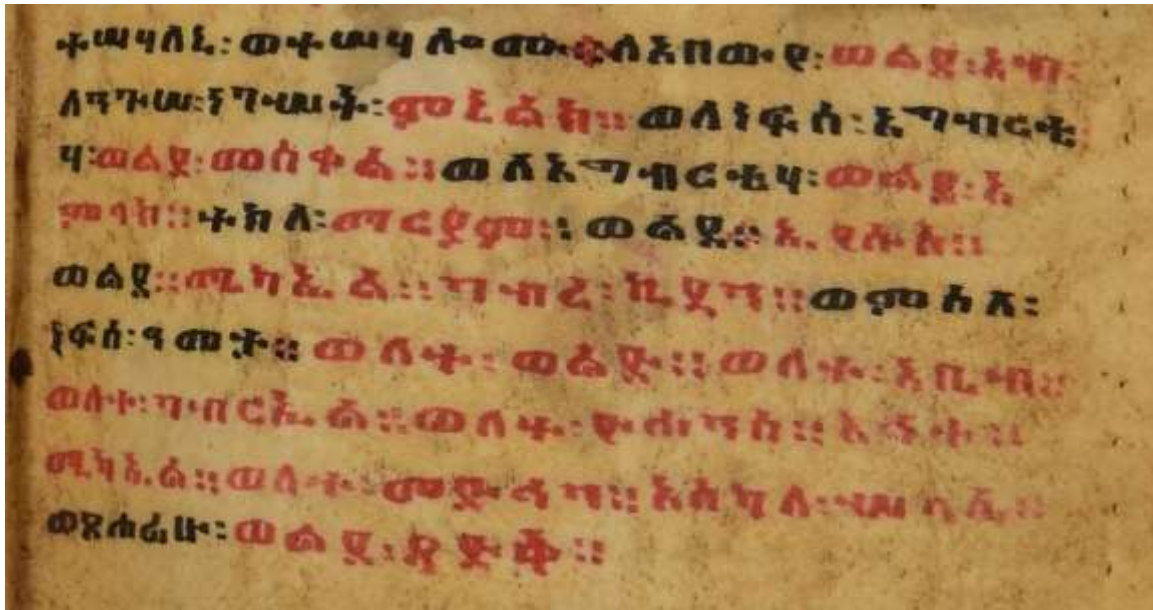 ተሣሃለኒ፡ ወተሣሃ ሎሙ፡ ለአበውየ፡ ወልደ፡ አብ፡
ለንጉሠ፡ ነገሥት፡ ምኒልክ። ወለነፍሰ፡ አግብርቲ
ሃ፡ ወልደ፡ መስቀል። ወለአግብርቲሃ፡ ወልደ፡ አ
ምላክ። ተክለ፡ ማርያም። ወልደ። ኢየሱስ።
ወልደ። ሚካኤል። ገብረ፡ ኪዳን። ወምስለ፡
ነፍሰ፡ ዓመት። ወለተ፡ ወልድ። ወለተ፡ አቢብ።
ወለተ፡ ገብርኤል። ወለተ፡ ዮሐንስ። እኅተ።
ሚካኤል። ወለተ፡ መድኅን። አስካለ፡ ሥላሴ።
ወጸሐፊሁ፡ ወልደ፡ ጻድቅ።